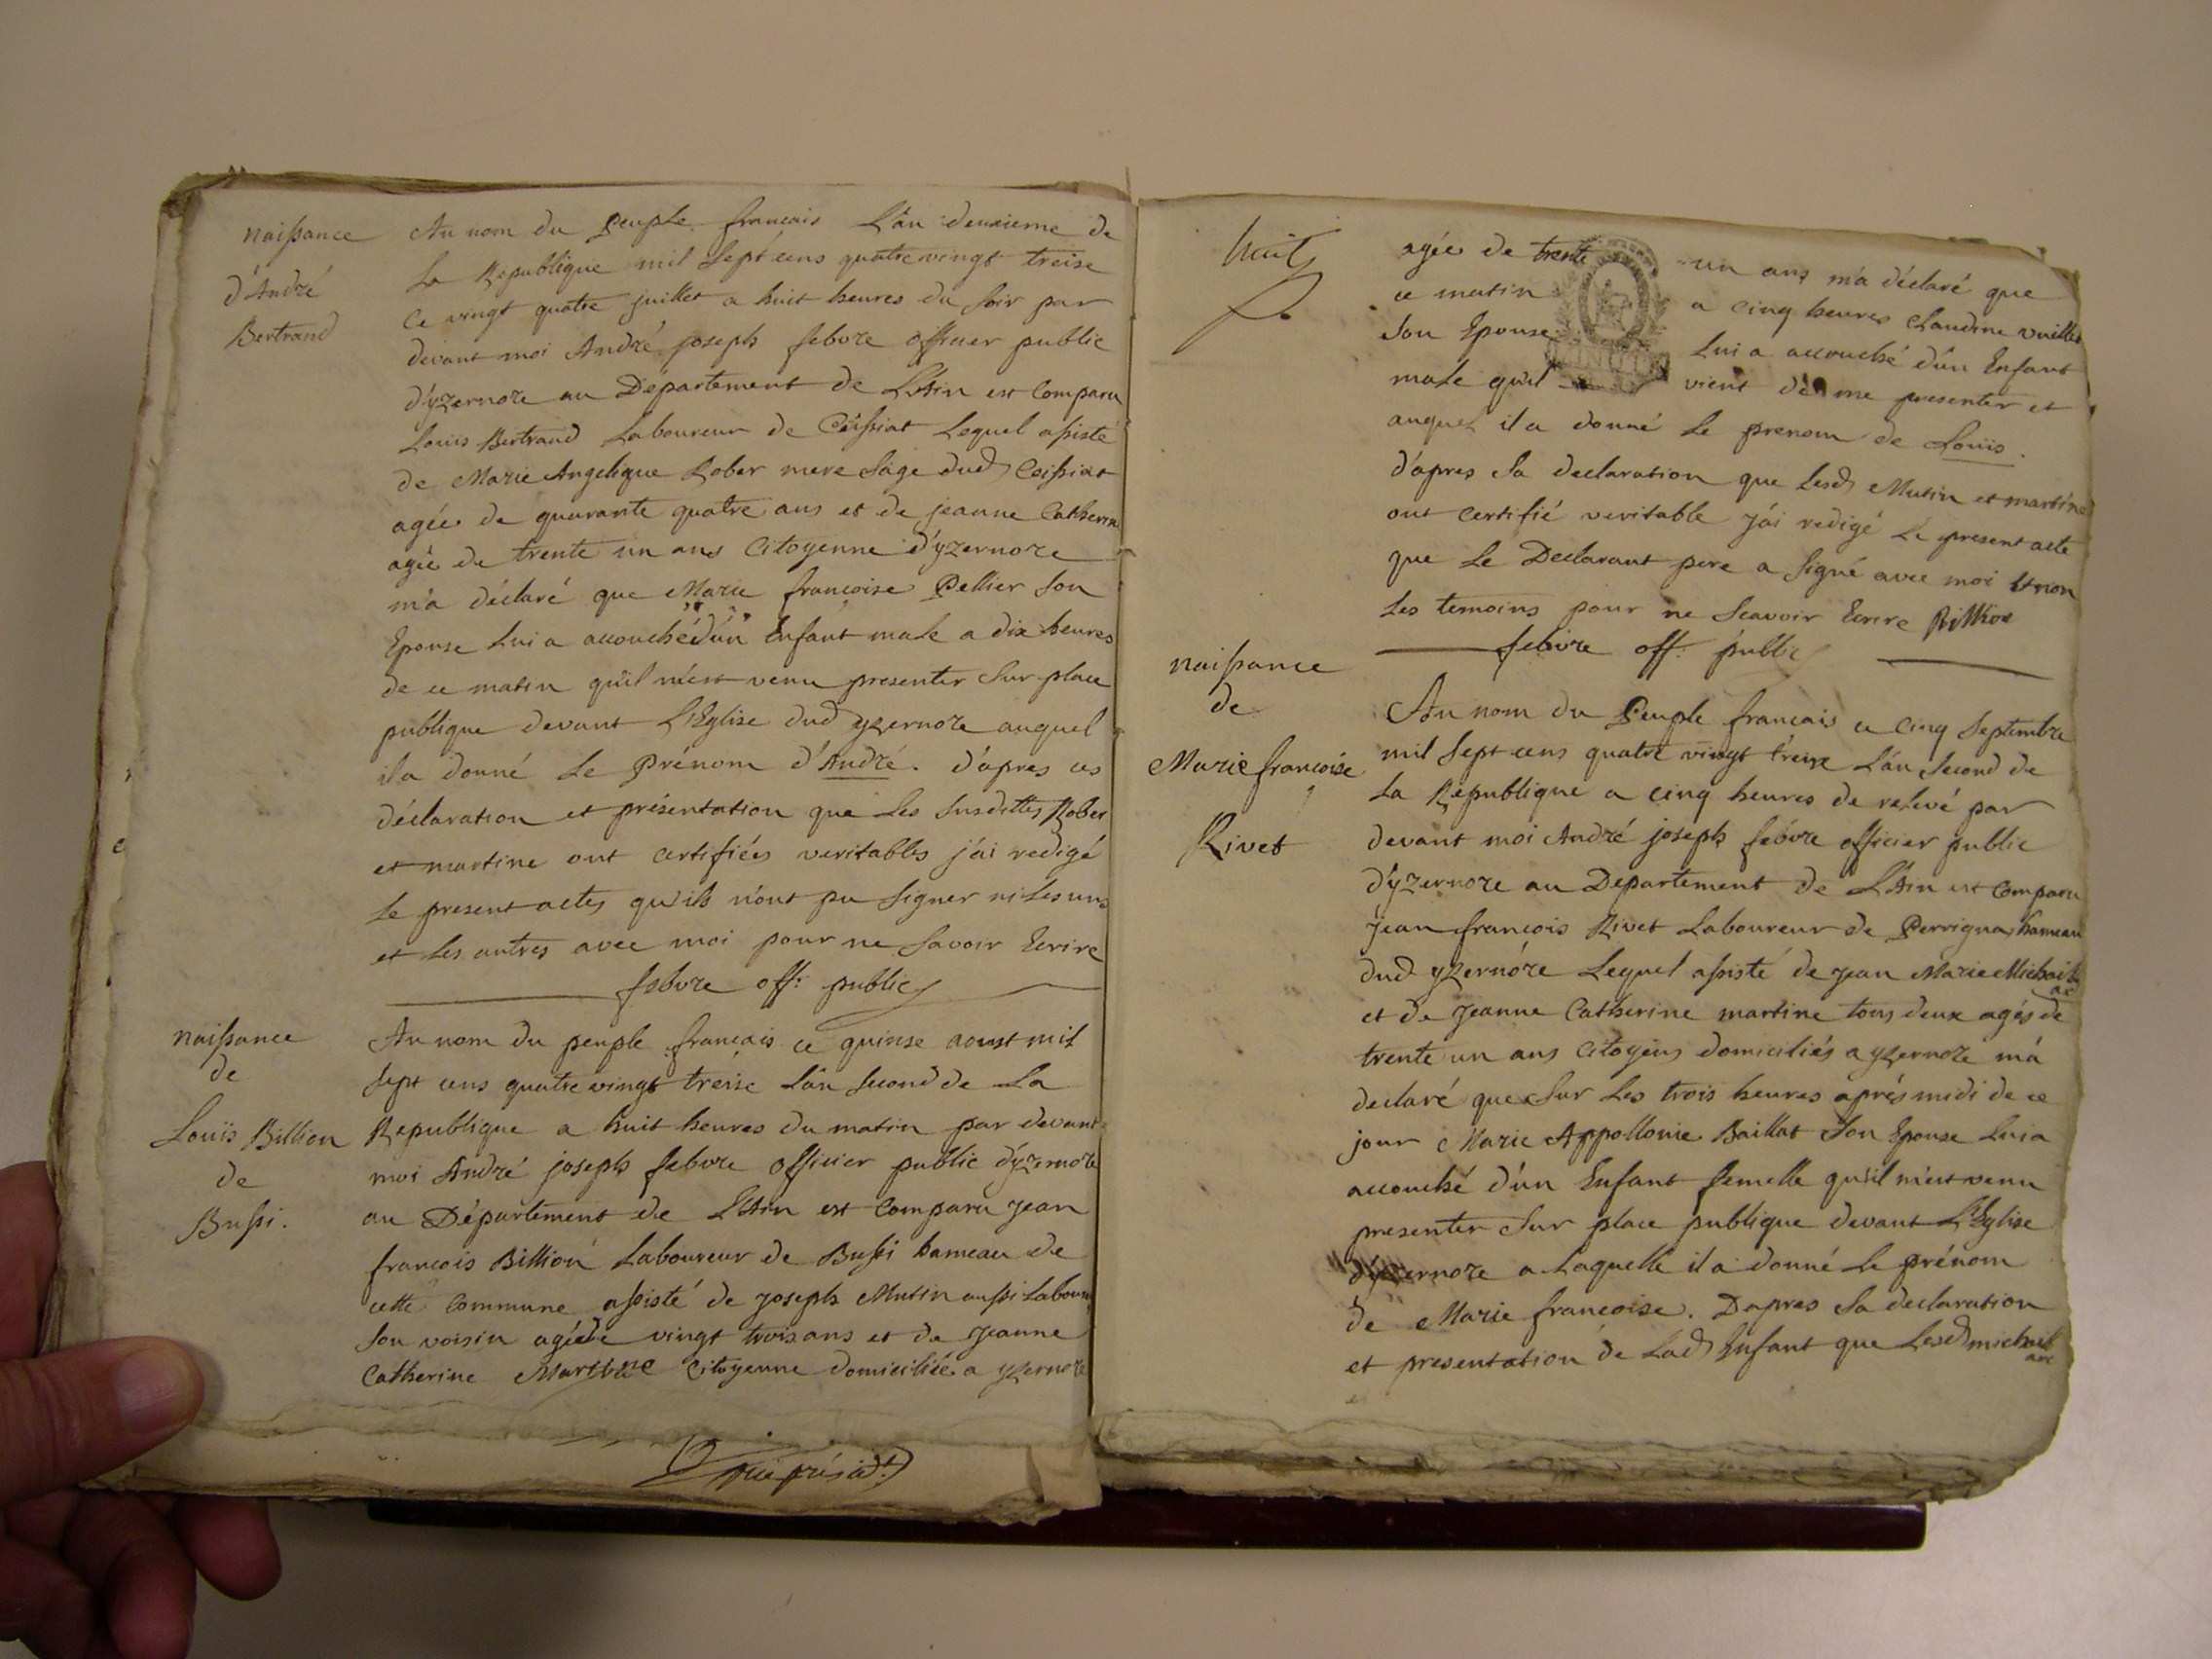 naissance
d'André
Bertrand
Au nom du Peuple francais L'an deuxieme de
La Republique mil Sept cens quatre vingt treise
Ce vingt quatre juillet a huit heures du soir par
devant moi André joseph febvre officier public
d'yzernore au Departement de L'Ain est Comparu
Louis Bertrand Laboureur de Ceissiat Lequel assisté
de Marie Angelique Rober mere Sage dud Ceissiat
agée de quarante quatre ans et de jeanne Catherine
agée de trente un ans Citoyenne d'yzernore
m'a déclaré que Marie françoise Pellier son
Epouse Lui a accouché d'un Enfant male a dix heures
de ce matin qu'il m'est venu presenter sur place
publique devant L'Eglise dud yzernore auquel
il a donné Le Prénom d'André. d'apres ces
déclaration et présentation que Les susdittes Rober
et martine ont certifiées veritables j'ai redigé
Le present actes qu'ils n'ont pu signer ni Les uns
et Les autres avec moi pour ne savoir Ecrire
febvre off: public
naissance
de
Louis Billion
de
Bussi.
Au nom du peuple francais ce quinse aoust mil
sept cens quatre vingt treise L'an second de La
Republique a huit heures du matin par devant
moi André joseph febvre officier public d'yzernore
au Département de L'Ain est Comparu jean
françois Billion Laboureur de Bussi hameau de
cette Commune assisté de joseph Mutin aussi Laboureur
son voisin agé de vingt trois ans et de jeanne
Catherine Martine Citoyenne domiciliée a yzernore
huit
agée de trente un ans m'a déclaré que
ce matin a cinq heures Claudine vuillet
son Epouse Lui a accouché d'un Enfant
male qu'il vient de me presenter et
auquel il a donné Le prenom de Louis.
d'apres sa declaration que Lesd Mutin et martine
ont certifié veritable j'ai redigé Le present acte
que Le Declarant pere a signé avec moi et non
Les temoins pour ne scavoir Ecrire Billion
febvre off: public
naissance
de
Marie françoise
Rivet
Au nom du Peuple francais ce cinq Septembre
mil Sept cens quatre vingt treize L'an second de
La Republique a cinq heures de relevé par
devant moi André joseph febvre officier public
d'yzernore au Departement de L'Ain est Comparu
jean françois Rivet Laboureur de Perrignas hameau
dud yzernore Lequel assisté de jean Marie Michaillac
et de jeanne Catherine martine tous deux agés de
trente un ans Citoyens domiciliés a yzernore m'a
declaré que sur Les trois heures aprés midi de ce
jour Marie Appollonie Baillat son Epouse Lui a
accouché d'un Enfant femelle qu'il m'est venu
presenter sur place publique devant L'Eglise
d'yzernore a Laquelle il a donné Le prénom
de Marie françoise. Dapres sa declaration
et presentation de Lad Enfant que Lesd